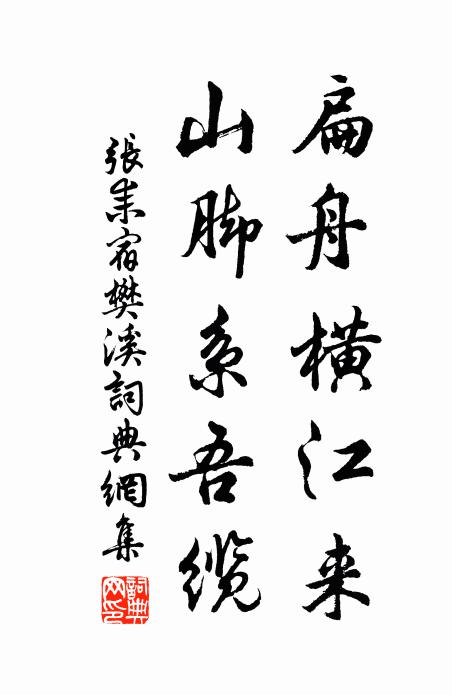 扁舟横江来
山脚系吾缆
張耒宿樊溪詞典網集
詞典網印